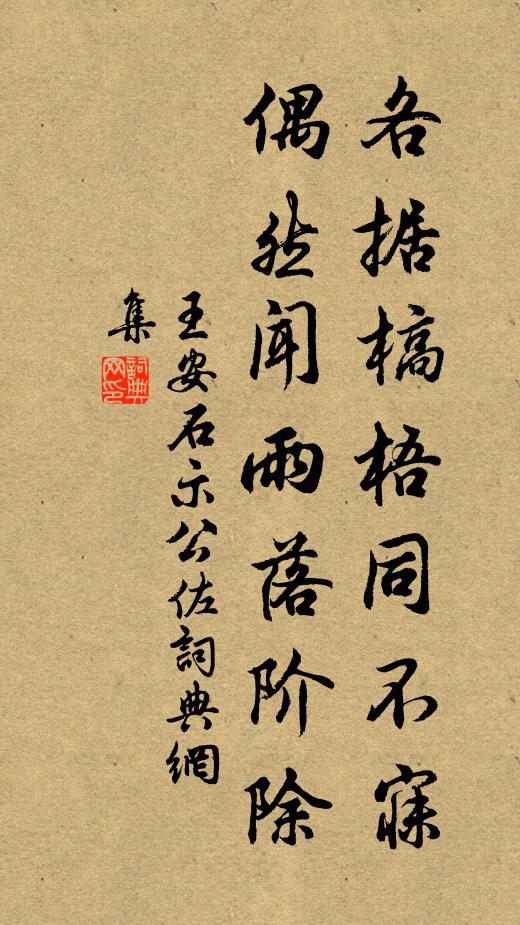 各据槁梧同不寐
偶然闻雨落阶除
王安石示公佐詞典網
集
詞典
网印